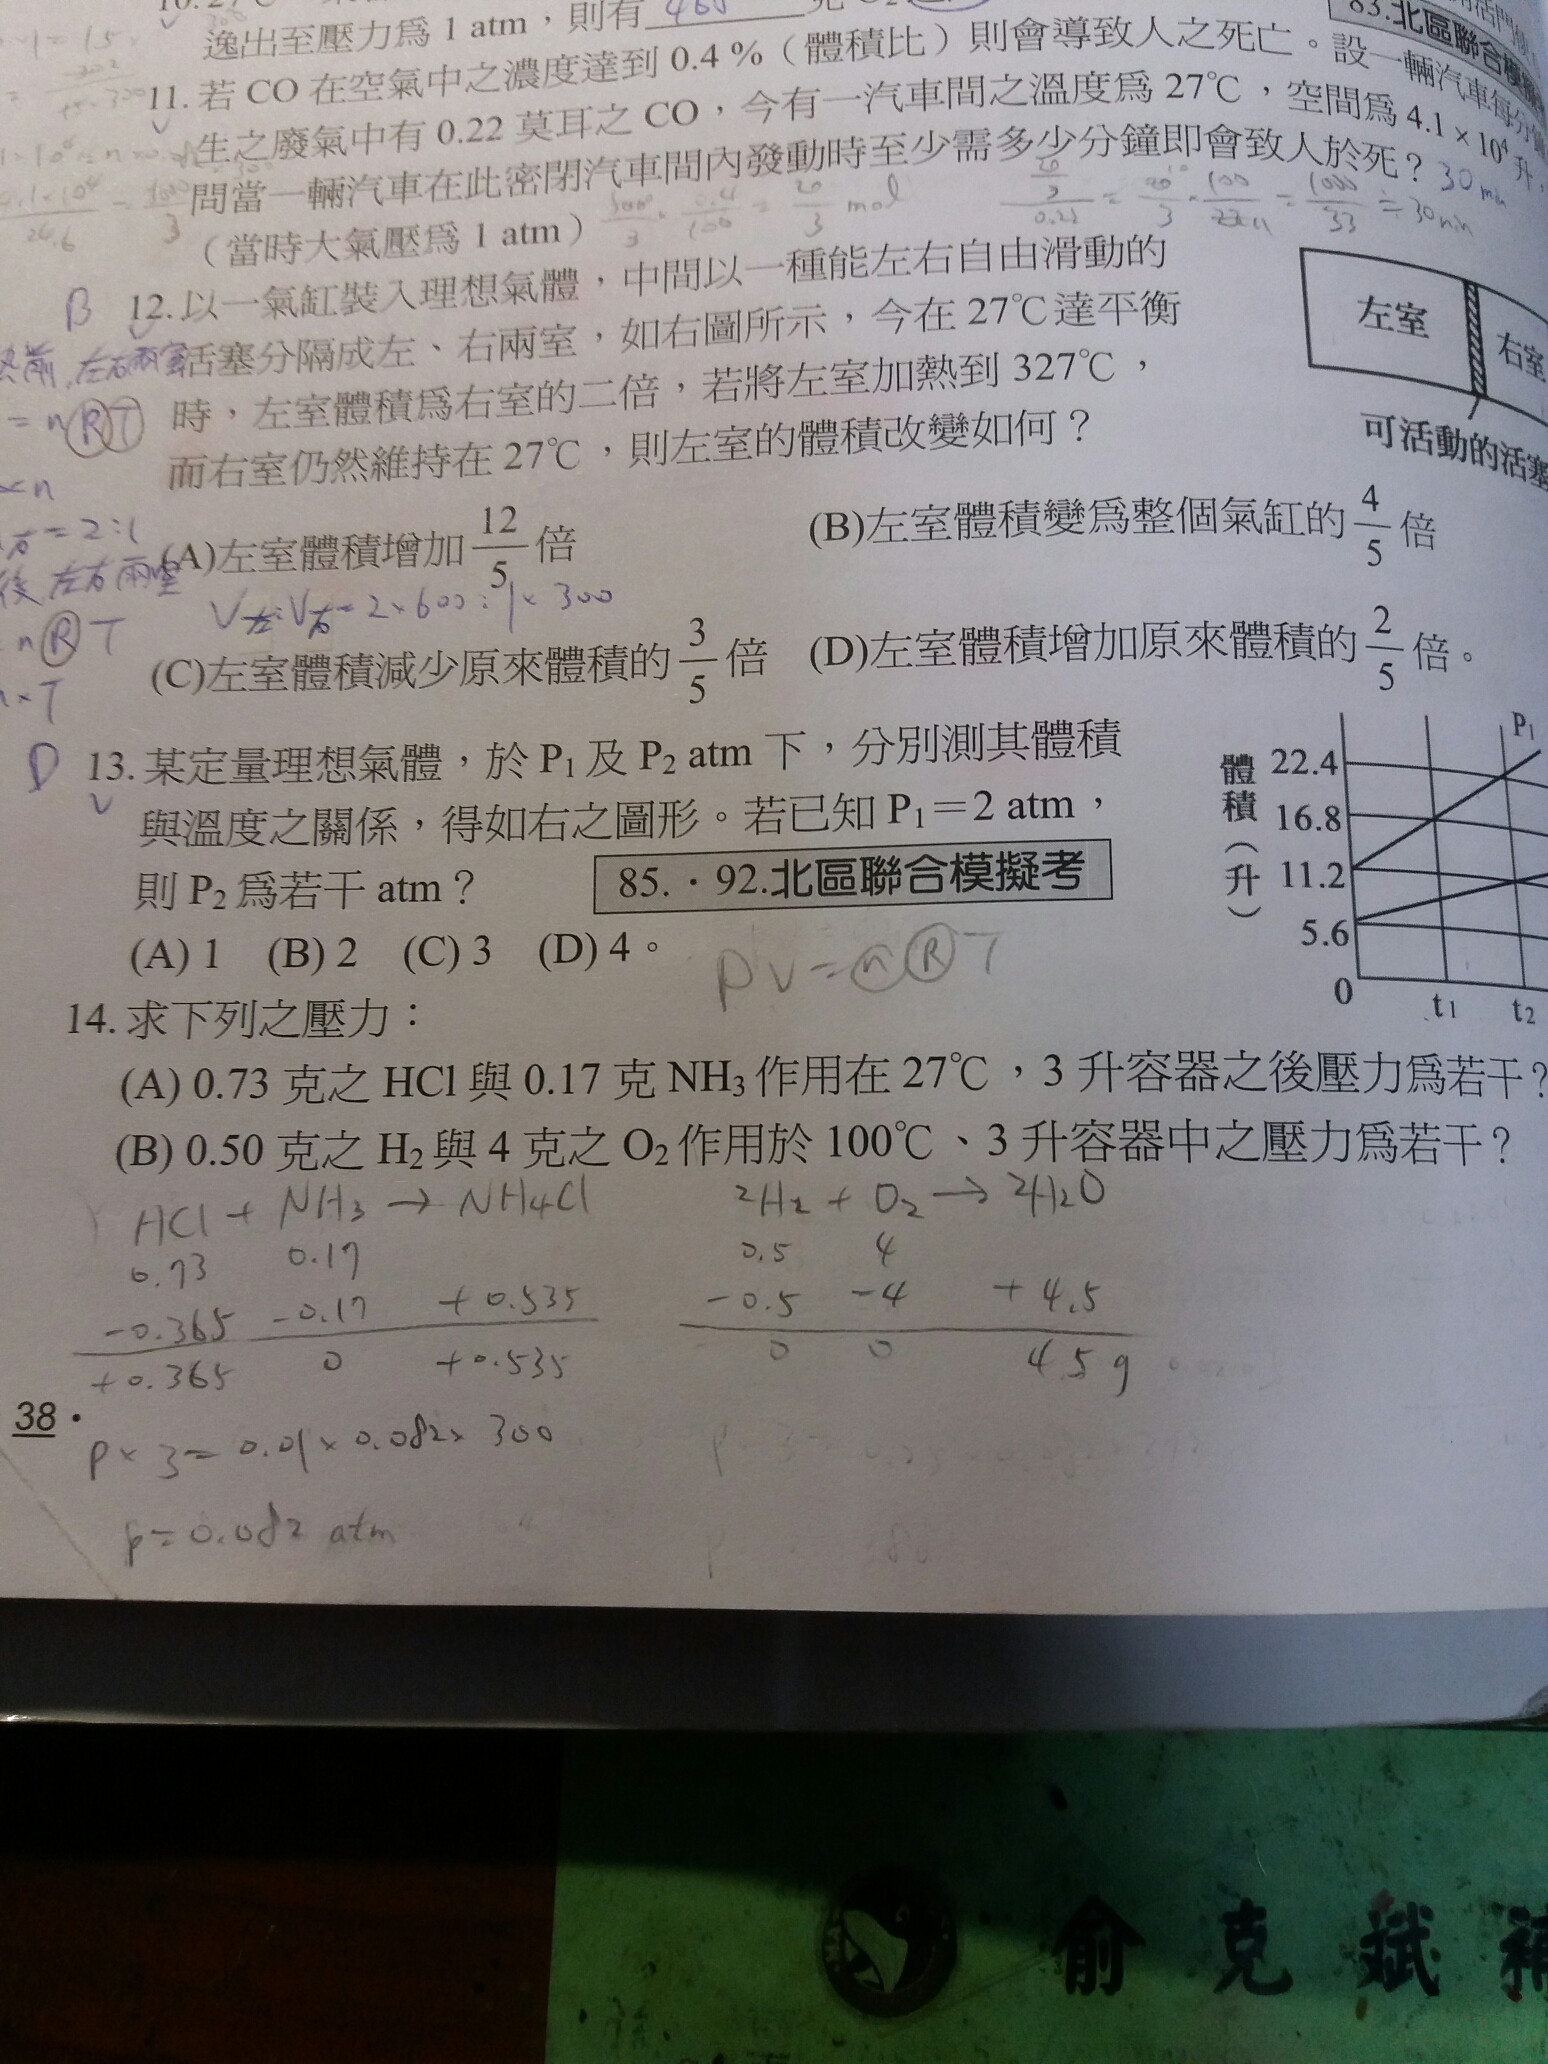 逸出至壓力爲 1 atm，則有 460 克
83.北區聯合模擬
11. 若 CO 在空氣中之濃度達到 0.4 %（體積比）則會導致人之死亡。設一輛汽車每分鐘
生之廢氣中有 0.22 莫耳之 CO，今有一汽車間之溫度爲 27℃，空間爲 4.1 × 10⁴ 升，
問當一輛汽車在此密閉汽車間內發動時至少需多少分鐘即會致人於死？ 30 min
（當時大氣壓爲 1 atm）
B 12. 以一氣缸裝入理想氣體，中間以一種能左右自由滑動的
活塞分隔成左、右兩室，如右圖所示，今在 27℃達平衡
時，左室體積爲右室的二倍，若將左室加熱到 327℃，
而右室仍然維持在 27℃，則左室的體積改變如何？
左室
右室
可活動的活塞
(A)左室體積增加 12/5 倍 (B)左室體積變爲整個氣缸的 4/5 倍
V左:V右=2×600:1×300
(C)左室體積減少原來體積的 3/5 倍 (D)左室體積增加原來體積的 2/5 倍。
D 13. 某定量理想氣體，於 P₁ 及 P₂ atm 下，分別測其體積
與溫度之關係，得如右之圖形。若已知 P₁＝2 atm，
則 P₂ 爲若干 atm？ 85.・92.北區聯合模擬考
(A) 1 (B) 2 (C) 3 (D) 4。
PV=nRT
體積（升）
P₁
22.4
16.8
11.2
5.6
0
t₁ t₂
14. 求下列之壓力：
(A) 0.73 克之 HCl 與 0.17 克 NH₃ 作用在 27℃，3 升容器之後壓力爲若干？
(B) 0.50 克之 H₂ 與 4 克之 O₂ 作用於 100℃、3 升容器中之壓力爲若干？
HCl + NH₃ → NH₄Cl
0.73 0.17
-0.365 -0.17 +0.535
+0.365 0 +0.535
P×3=0.01×0.082×300
P=0.082 atm
2H₂ + O₂ → 2H₂O
0.5 4
-0.5 -4 +4.5
0 0 4.5 g
38・
俞克斌